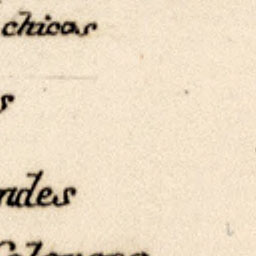 chicas
s
ndes